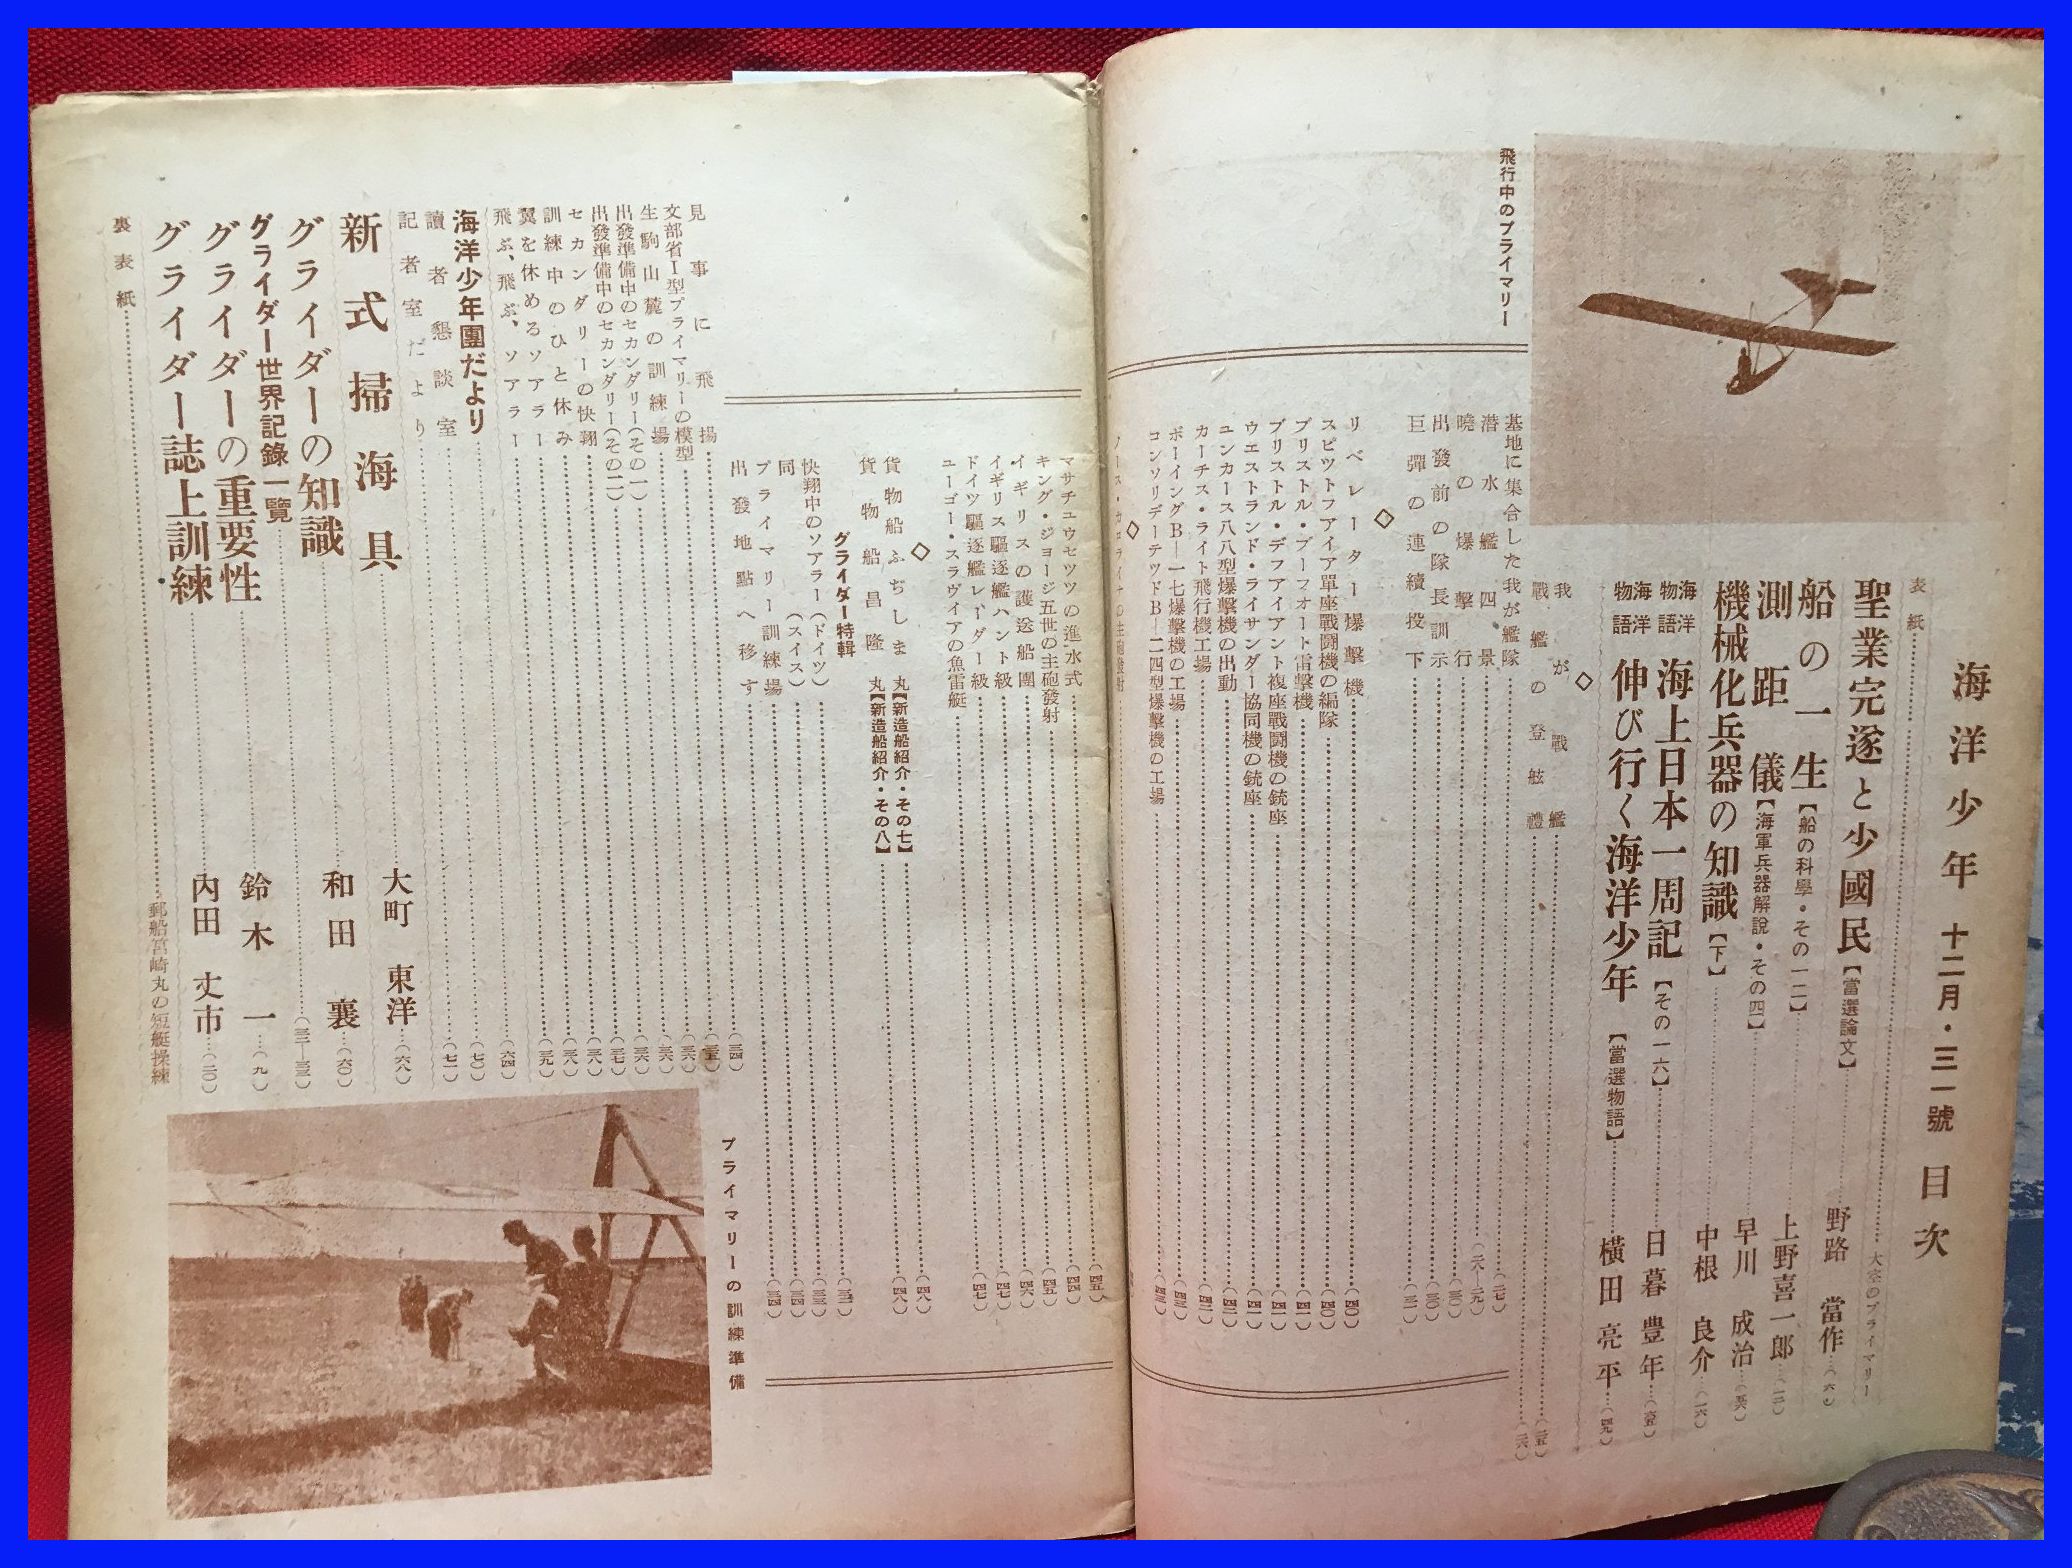 海洋少年 十二月・三一號 目次
表紙 大空のプライマリー
聖業完遂と少國民【當選論文】 野路 當作 (六)
船の一生【船の科學・その一二】 上野喜一郎 (一二)
測距儀【海軍兵器解說・その四】 早川 成治
機械化兵器の知識【下】 中根 良介 (一六)
海洋物語 海上日本一周記【その一六】 日暮 豊年
海洋物語 伸び行く海洋少年【當選物語】 橫田 亮平 (四九)
◇
我が戰艦 (二五)
戰艦の登舷禮 (二六)
飛行中のプライマリー
基地に集合した我が艦隊 (二七)
潜水艦四景 (二八—二九)
曉の爆擊行 (三〇)
出發前の隊長訓示 (三〇)
巨彈の連續投下 (三一)
◇
リベレーター爆擊機 (四〇)
スピットフアイア單座戰鬪機の編隊 (四〇)
ブリストル・ブーフオート雷擊機 (四一)
ブリストル・デフアイアント複座戰鬪機の銃座 (四一)
ウエストランド・ライサンダー協同機の銃座 (四一)
ユンカース八八型爆擊機の出動 (四二)
カーチス・ライト飛行機工場 (四二)
ボーイングB—一七爆擊機の工場 (四三)
コンソリデーテッドB—二四型爆擊機の工場 (四三)
◇
ノース・カロライナの主砲發射
マサチユウセツツの進水式 (四五)
キング・ジョージ五世の主砲發射 (四四)
イギリスの護送船團 (四五)
イギリス驅逐艦ハント級 (四六)
ドイツ驅逐艦レーダー級 (四七)
ユーゴー・スラヴイアの魚雷艇 (四七)
◇
貨物船ふぢしま丸【新造船紹介・その七】 (四八)
貨物船昌隆丸【新造船紹介・その八】 (四八)
グライダー特輯
快翔中のソアラー(ドイツ) (三二)
同 (スイス) (三三)
プライマリー訓練場 (三四)
出發地點へ移す (三四)
見事に飛揚 (三四)
文部省Ⅰ型プライマリーの模型 (三五)
生駒山麓の訓練場 (三六)
出發準備中のセカンダリー(その一) (三六)
出發準備中のセカンダリー(その二) (三六)
セカンダリーの快翔 (三七)
訓練中のひと休み (三八)
翼を休めるソアラー (三八)
飛ぶ、飛ぶ、ソアラー (三九)
海洋少年團だより (六四)
讀者懇談室 (七〇)
記者室だより (七二)
新式掃海具 大町 東洋 (六八)
グライダーの知識 和田 襄 (六〇)
グライダー世界記錄一覽 (三二—三三)
グライダーの重要性 鈴木 一 (九)
グライダー誌上訓練 內田 丈市 (二〇)
裏表紙 郵船宮崎丸の短艇操練
プライマリーの訓練準備